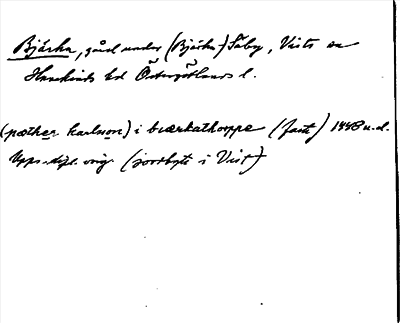 Bjärka, gård under (Bjärka-) Säby, Vists sn
Hanekinds hd Östergötlands l.
(pæther karlsson) i bærkathorppe (fasta) 1448 u.d.
Upps. dipl. orig. (jordbyte i Vist)